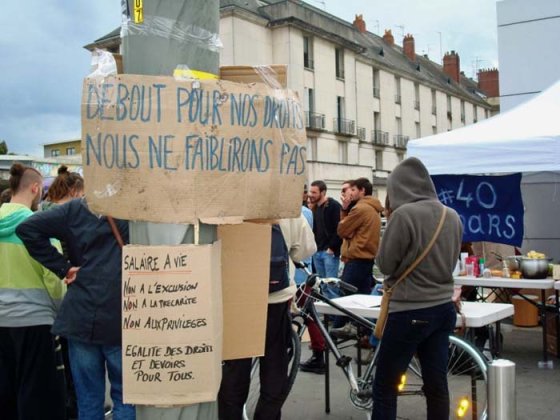 DEBOUT POUR NOS DROITS
NOUS NE FAIBLIRONS PAS
SALAIRE A VIE
NON A L'EXCLUSION
NON A LA PRECARITE
NON AUX PRIVILÈGES
EGALITE DES DROITS
ET DEVOIRS
POUR TOUS.
#40
MARS